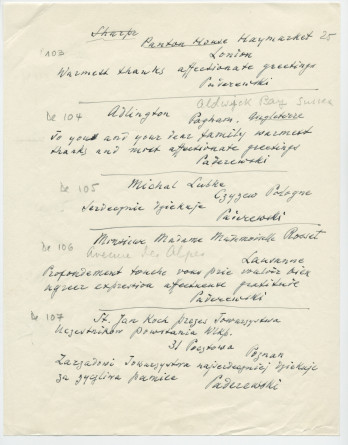 Sharpe
103 Panton House Haymarket 25
London
Warmest thanks affectionate greetings
Paderewski
De 104 Adlington Aldwick Bay Sussex
Pagham. Angleterre
To you and your dear family warmest
thanks and most affectionate greetings
Paderewski
De 105 Michal Lubka
Czyzew Pologne
Serdecznie dziekuje
Paderewski
De 106 Monsieur Madame Mademoiselle Rosset
Avenue des Alpes
Lausanne
Profondement touche vous prie vouloir bien
agreer expression affectueuse gratitude
Paderewski
De 107 St. Jan Koch prezes Towarzystwa
Uczestników Powstania Wlkp.
31 Pocztowa
Poznan
Zarzadowi Towarzystwa najserdeczniej dziekuje
za zyczliwa pamiec
Paderewski